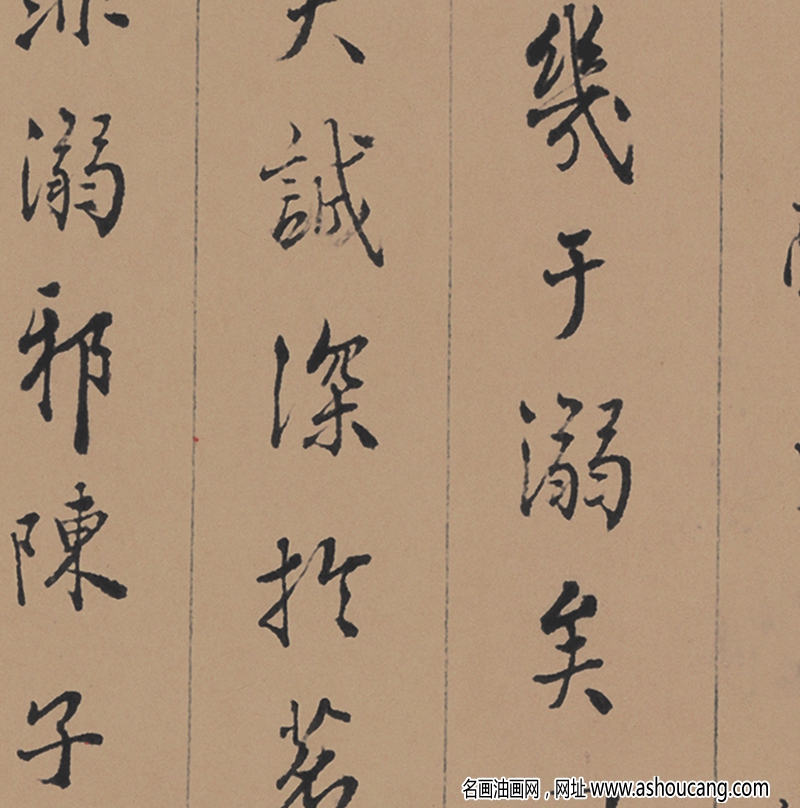 幾于溺矣
誠深於茗
溺邪陳子
名画油画网，网址 www.ashoucang.com